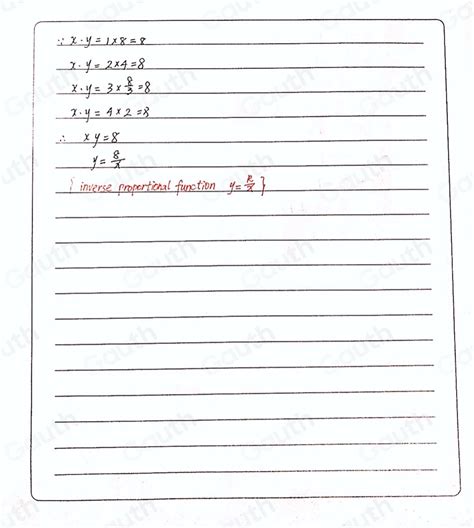 ∵ x·y=1×8=8
x·y=2×4=8
x·y=3×8/3=8
x·y=4×2=8
∴ xy=8
y=8/x
{ inverse proportional function y=k/x }
Gauth